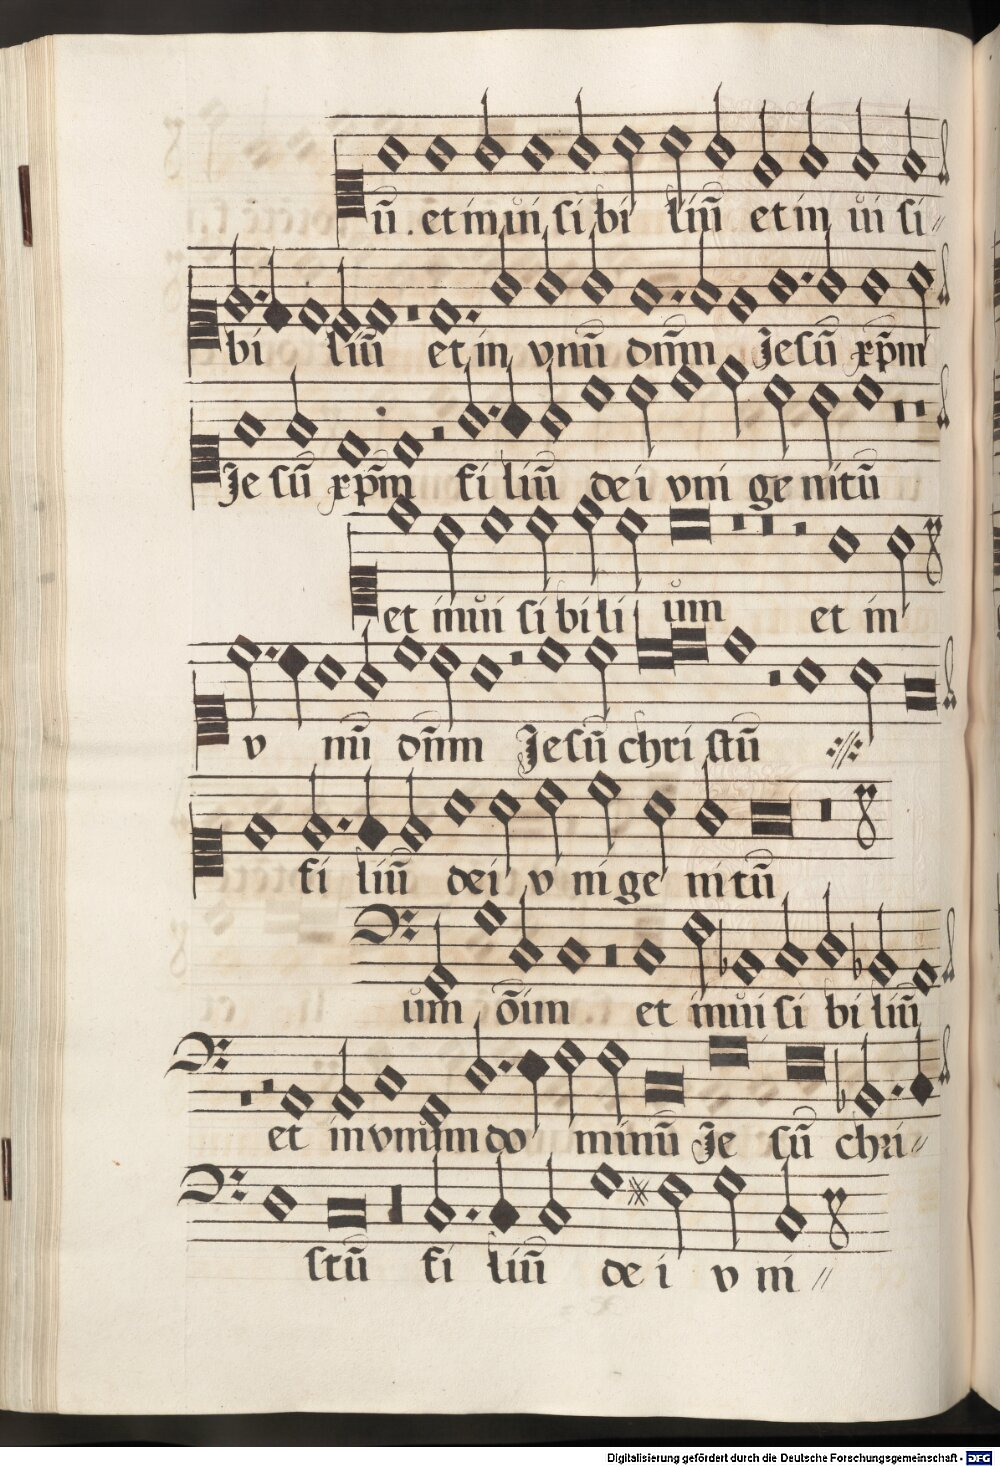 ū . et in ui si bi liū et in ui si
bi liū et in vnū dn̄m Jesū xp̄m
Je sū xp̄m fi liū de i vni ge nitū
et in ui si bi li um et in
v nū dn̄m Jesū chri stū
fi liū dei v ni ge ni tū
um oīm et in ui si bi liū
et in vnum do minū Je sū chri
stū fi liū de i v ni
Digitalisierung gefördert durch die Deutsche Forschungsgemeinschaft - DFG